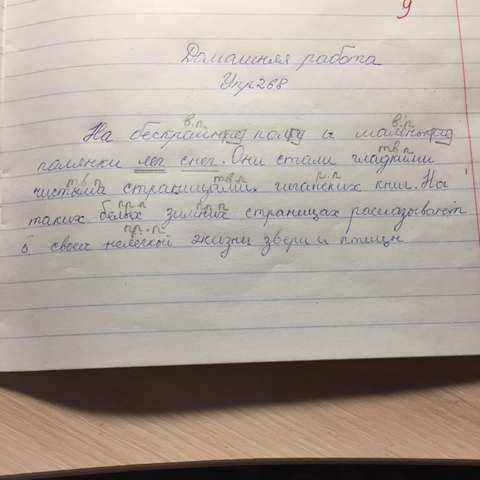 9
Домашняя работа
Упр 268
в.п в.п
На бескрайние поля и маленькие
тв.п
полянки лег снег. Они стали гладкими
тв.п тв.п р.п
чистыми страницами гиганских книг. На
пр.п пр.п
таких белых зимних страницах рассказывают
пр.п
о своей нелегкой жизни звери и птицы